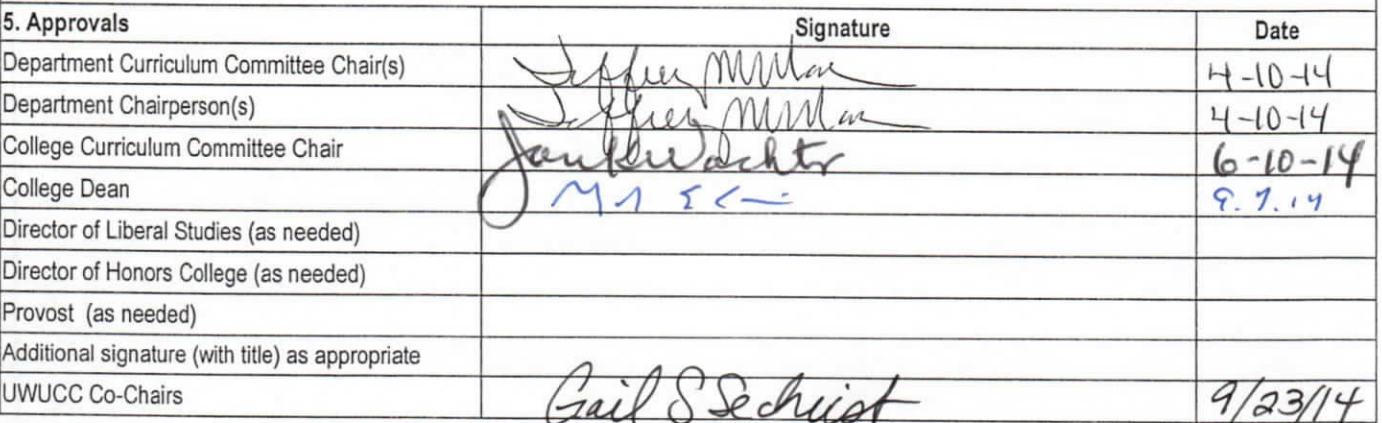 5. Approvals Signature Date
Department Curriculum Committee Chair(s) Jeffrey 4-10-14
Department Chairperson(s) Jeffrey 4-10-14
College Curriculum Committee Chair Wachter 6-10-14
College Dean
Director of Liberal Studies (as needed)
Director of Honors College (as needed)
Provost (as needed)
Additional signature (with title) as appropriate
UWUCC Co-Chairs Gail S Sechrist 9/23/14